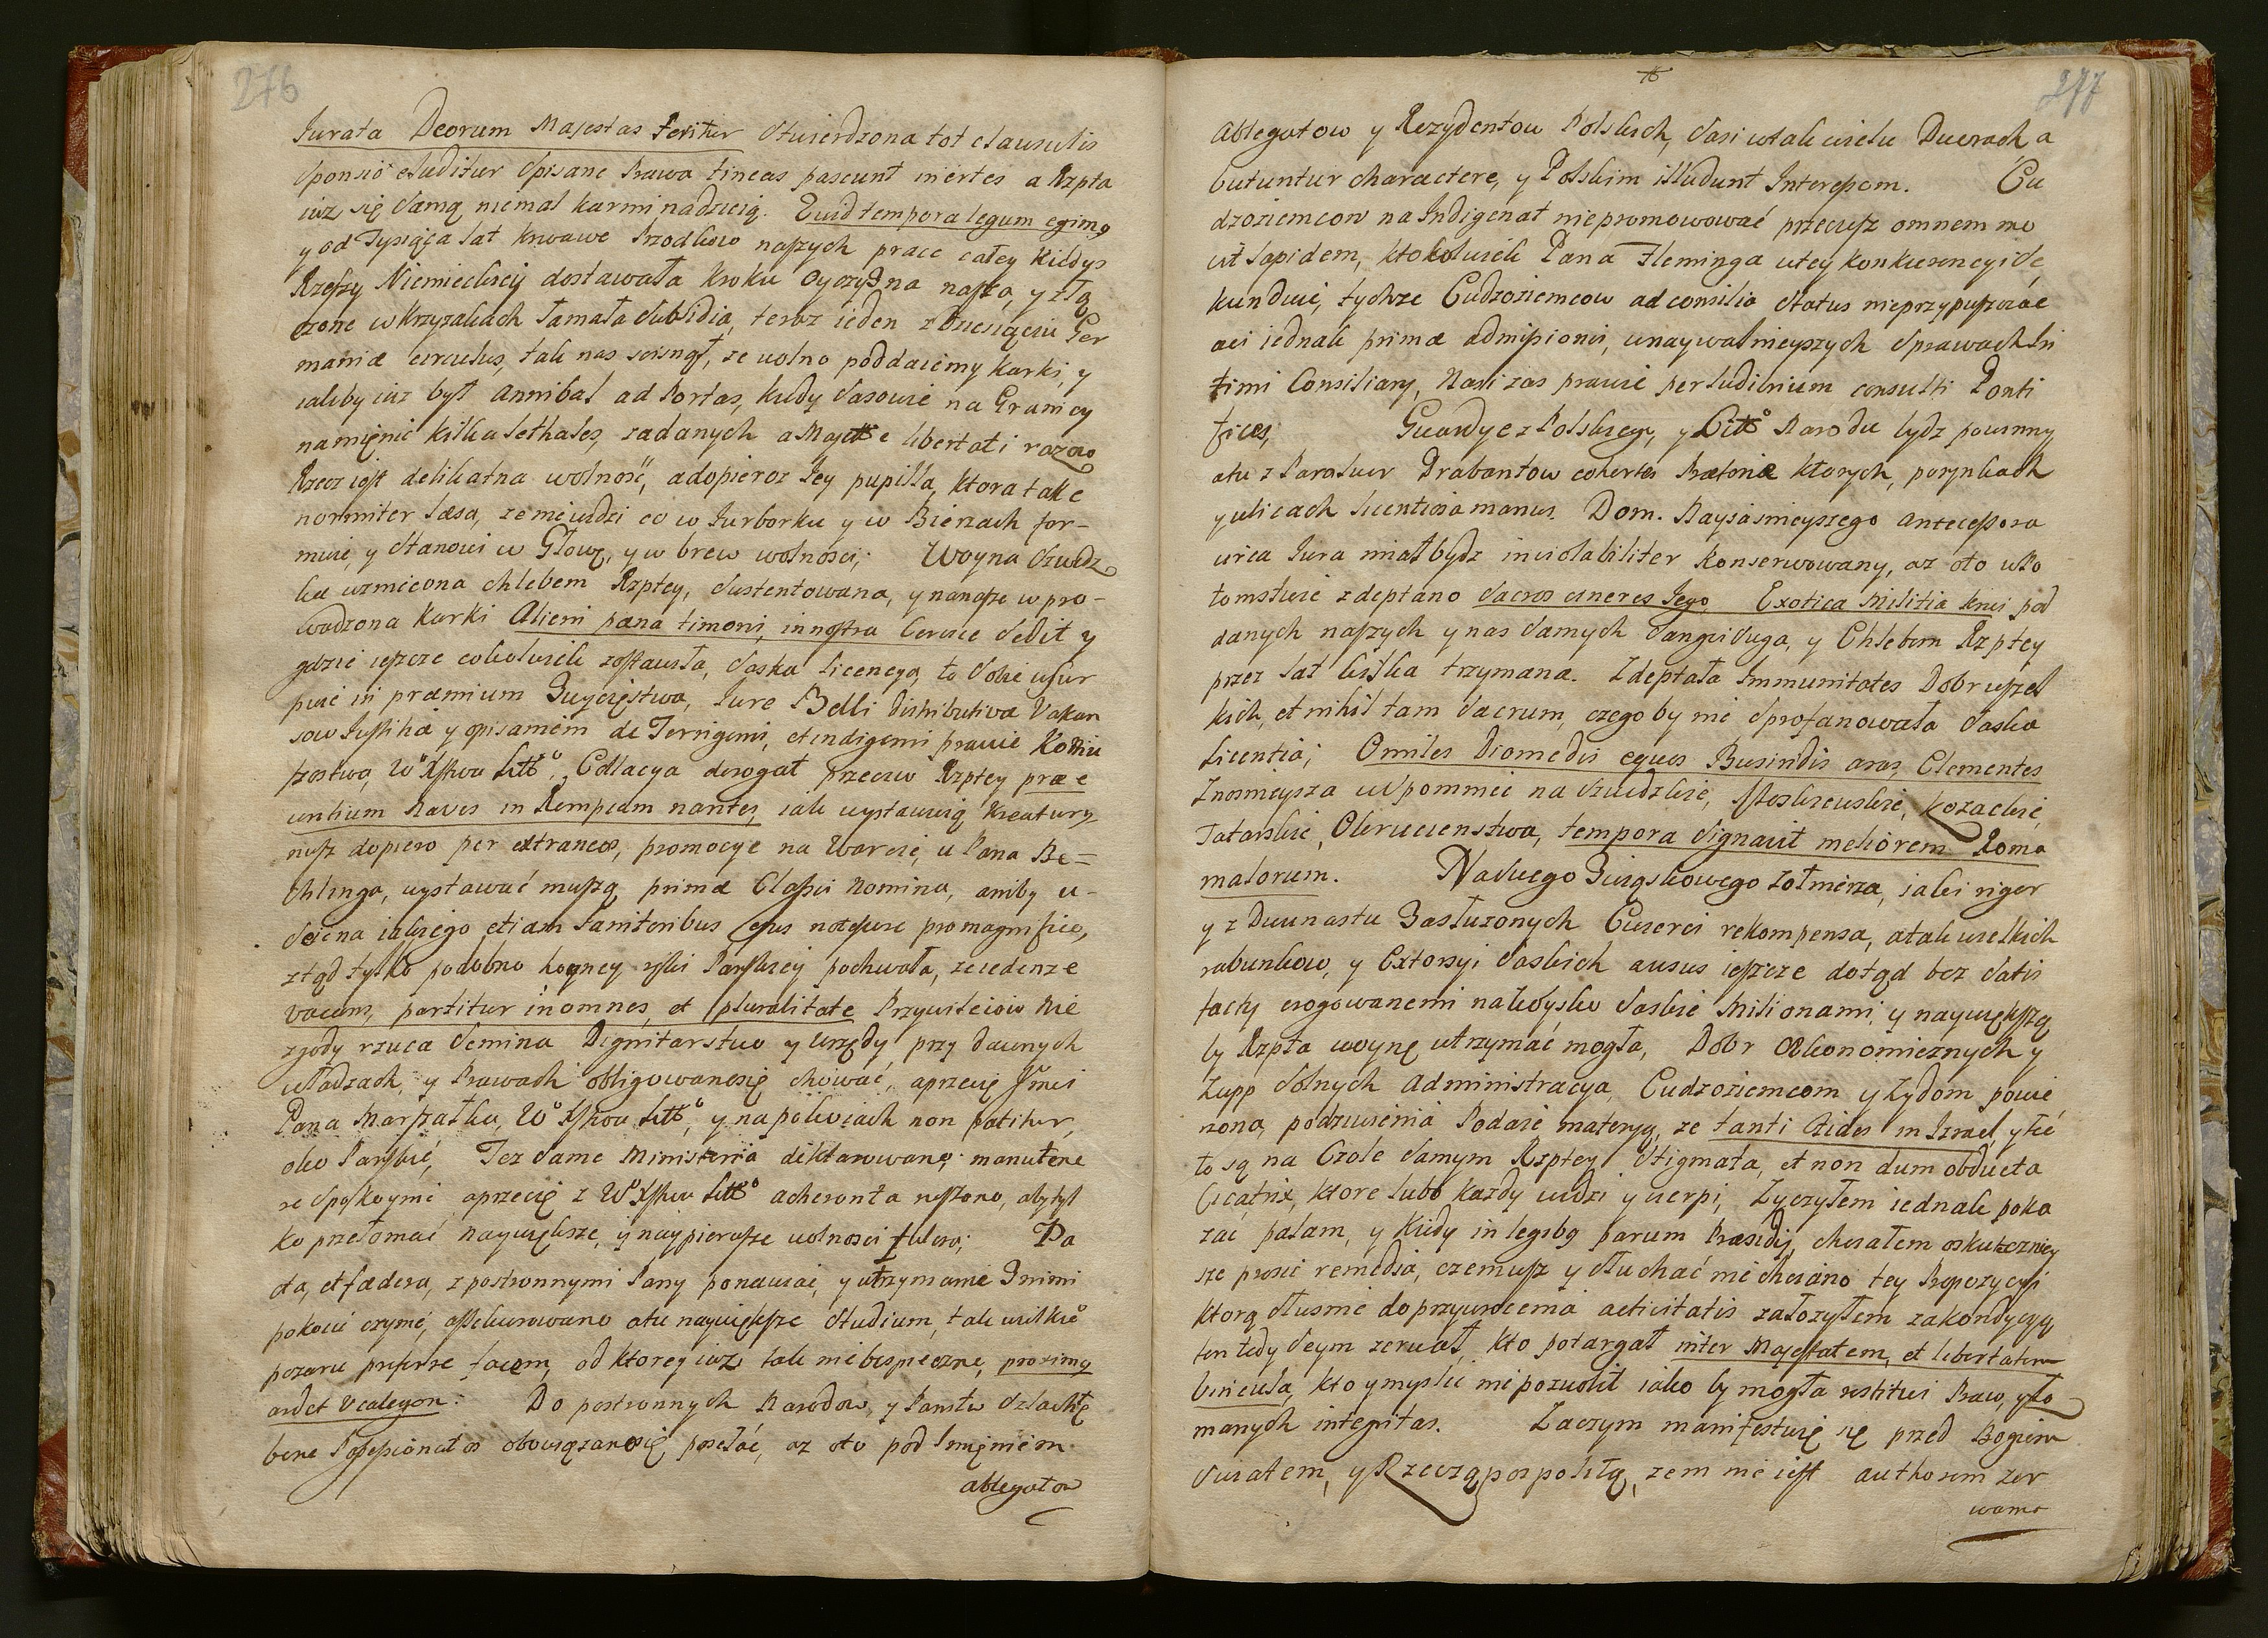 276
Jurata Deorum Majestas teritur stwierdzona tot clausulis
sponsio eluditur spisane Prawa tineas pascunt inertes a Rzpta
iuz się samą niemal karmi nadzieią. Quid tempora legum egimg
y od Tysiąca lat krwawe Przodkow naszych prace całey kiedys
Rzeszy Niemieckiey dostawała kroku Oyczyzna nasza, y złą
czone w Krzyzakach łamała subsidia, teraz ieden z dziesiąciu Ger
maniæ circulus, tak nas scisnął, ze wolno poddaiemy karki, y
iakby iuz był Annibal ad Portas, kiedy Sasowie na Granicy
namięnie kilku lethales, zadanych a Majtte libertati razow
Rzecz iest delikatna wolność, a dopieroz Jey pupilla, ktora tak e
normiter læsa, ze niewidzi co w Jurborku y w Birzach for-
muie, y stanowi w Głowę, y w brew wolności; Woyna Szwedz
ka wzniecona chlebem Rzptey, sustentowana, y na nasze w pro-
wadzona karki Alieni pæna timoris, in nostra Cervice sedit y
gdzie ieszcze cokolwiek zostawiła, saska licencya, to sobie usur
puie in præmium Zwycięstwa, Jure Belli distributiva Vakan
sow Justitia y opisaniem de Terrigenis, et indigenis prawie Koniu
szostwa, Wo Xstwa Litto, Collacya derogat przeciw Rzptey præ e
untium Naves in Rempcam nantes, iak wystawią Kreatury
nusz dopiero per extraneos, promocye na Warcie, u Pana Be-
chlinga, wystawać muszą primæ Classis Nomina, aniby u-
Seiena iakiego etiam Janitoribus eius notescere pro magnifico,
ztąd tylko podobno hoyney ręki Pańskiey pochwała, ze iedenze
vacans, partitur in omnes, et pluralitate Przywileiow nie
zgody rzuca semina Dignitarstwa y Urzędy przy dawnych
władzach, y Prawach obligowane się chować, a przecię Jmci
Pana Marszałka, Wo Xstwa Litto, y na pokoiach non patitur,
oko Pańskie, Tez same Ministeria diktarowano, manutene
re spokoynie a przecię z Wo Xstwa Litto acheronta ruszono, aby tyl
ko przełomać naywiększe, y naypierwsze wolnosci fulcra; Pa
cta, et fædera, z postronnymi Pany ponawiać, y utrzymanie z nimi
pokoiu czynić, assekurowano a tu naywiększe studium, tak wielkiego
pozaru præferre facem, od ktorey iuz tak niebespieczne, proximg
ardet Ucalegon. Do postronnych Narodow, y Panstw Szlachtę
bene Possesionatos obowiązano się, posełać, az oto pod Jmięniem
ablegatow
277
Ablegatow y Rezydentow Polskich, Sasi w tak wielu Dworach a
butuntur charactere, y Polskim illudunt Interessom. Cu
dzoziemcow na Indigenat niepromowować przeciesz omnem mo
vit lapidem, ktokolwiek Pana Fleminga w tey konkurencyi se
kunduie, tychze Cudzoziemcow ad consilia status nieprzypuszczać
aci iednak primæ admissionis, w naywalnieyszych sprawach In
timi Consiliary, Nasi zas prawie per ludibrium consulti Ponti
fices, Gwardye z Polskiego, y Litto Narodu bydz powinny
a tu z Parostwr Drabantow cohortes Prætoriæ ktorych, po rynkach
y ulicach licentiosa manus. Dom. Nayiasnieyszego Antecessora
wica Jura miał bydz inviolabiliter konserwowany, az oto w Po
tomstwie zdeptano sacros cineres Jego. Exotica Militia krwi pod
danych naszych y nas samych sanguisuga, y Chlebem Rzptey
przez lat kilka trzymana. Zdeptała Immunitates Dobr wszel
kich, et nihil tam sacrum, czegoby nie sprofanowała saska
licentia; Omnes Diomedis equos Busiridis aras, Clementes
Znosnieysza wspomniec na szwedzkie, Moskiewskie, kozackie,
Tatarskie, Okrucienstwa, tempora signavit meliorem Roma
malorum. Na swego Związkowego zołnierza, iaki rigor
y z Dwunastu Zasłuzonych Cwierci rekompensa, a tak wielkich
rabunkow, y Extorsyi saskich ausus ieszcze dotąd bez satis
fackj erogowanemi na Woysko saskie Milionami, y naywiększą
by Rzpta woynę utrzymać mogła, Dobr Œkonomicznych y
Zupp solnych Administracya, Cudzoziemcom y Zydom powie
rzona, podziwienia Podaie materyą, ze tanti Aides in Izrael, y te
to są na Czole samym Rzptey Stigmata, et non dum obducta
Cicatrix, ktore lubo kazdy widzi y cierpi, Zyczyłem iednak poka
zać palam, y kiedy in legibg parum Præsidij, chciałem oskuteczniey
sze prosić remedia, czemusz y słuchać nie chciano tey Propozycyi
ktorą słusznie do przywrocenia activitatis załozyłem za kondycyą
ten tedy Seym zerwał, kto potargał inter Majestatem, et libertatem
vincula, kto y myslić nie pozwolił iako by mogła restitui Praw, y ło
manych integritas. Zaczym manifestuię się przed Bogiem
Swiatem, y Rzecząpospolitą, zem nie iest authorem zer
wania